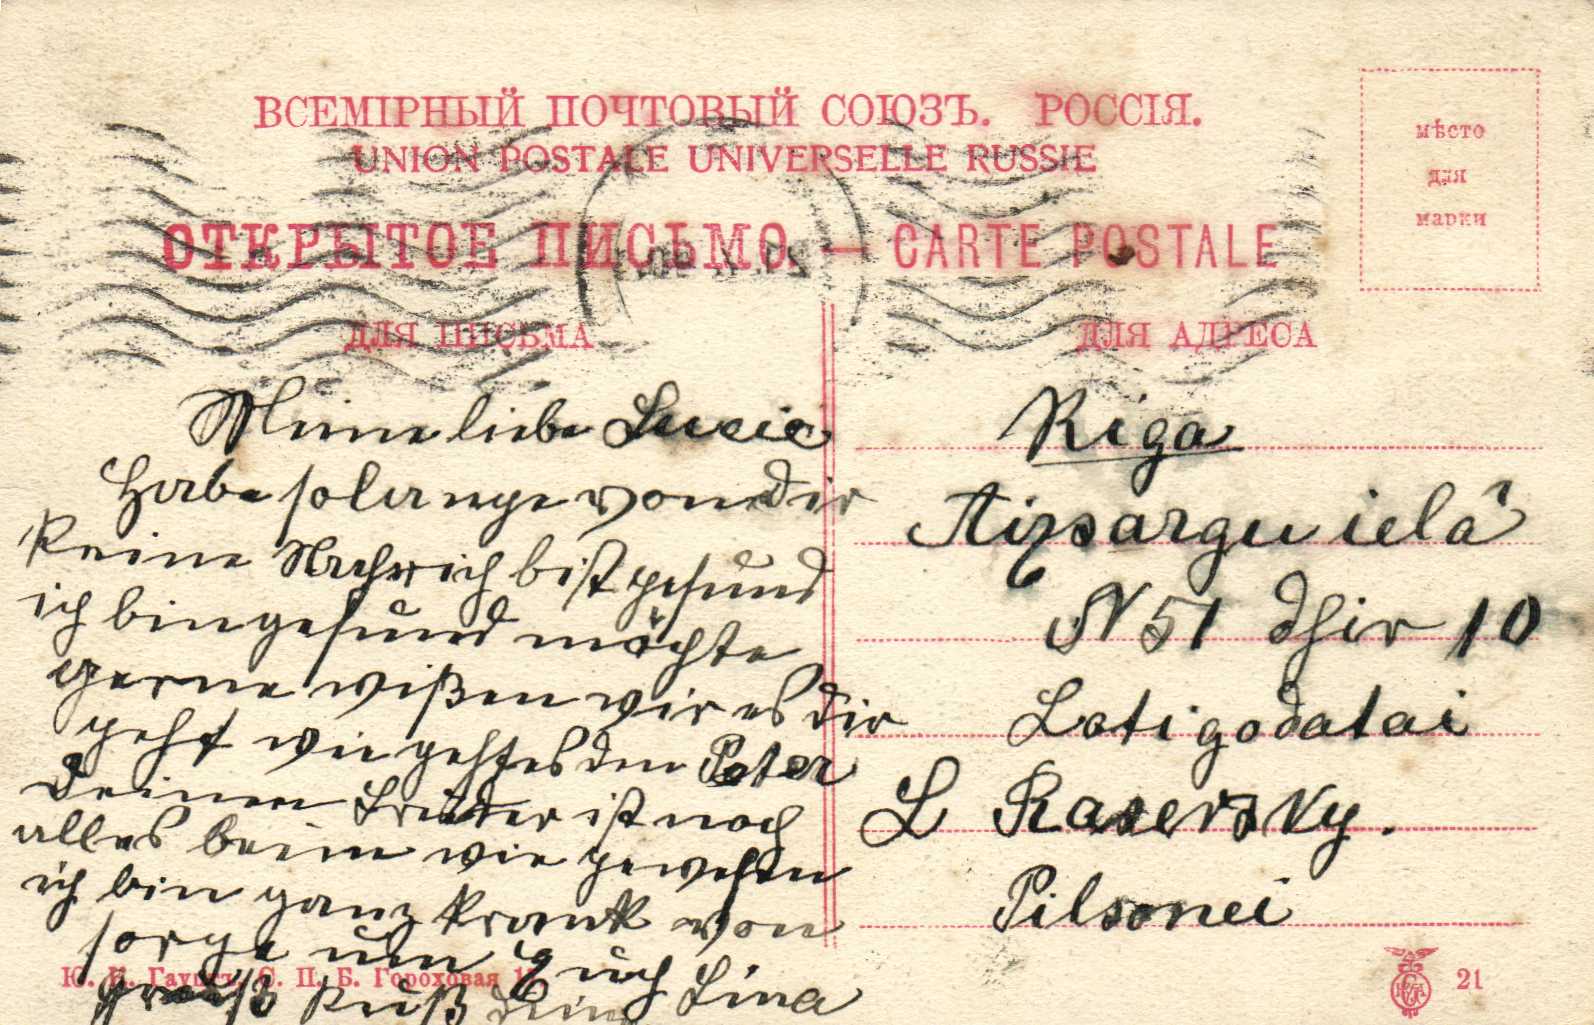 ВСЕМІРНЫЙ ПОЧТОВЫЙ СОЮЗЪ. РОССІЯ.
UNION POSTALE UNIVERSELLE RUSSIE
ОТКРЫТОЕ ПИСЬМО — CARTE POSTALE
мѣсто
для
марки
ДЛЯ ПИСЬМА
ДЛЯ АДРЕСА
Meine liebe Lucie
Habe so lange von dir
keine Nachrich bist gesund
ich bin gesund möchte
gerne wißen wir es dir
geht wie geht es den Peter
deinen Bruder ist noch
alles beim wie gewesen
ich bin ganz krank von
sorge um Euch Lina
Kuß
Riga
Aizsargu ielâ
N 51 dsir 10
Latigodatai
L
Pilsonei
Ю. И. С. П. Б. Гороховая
21